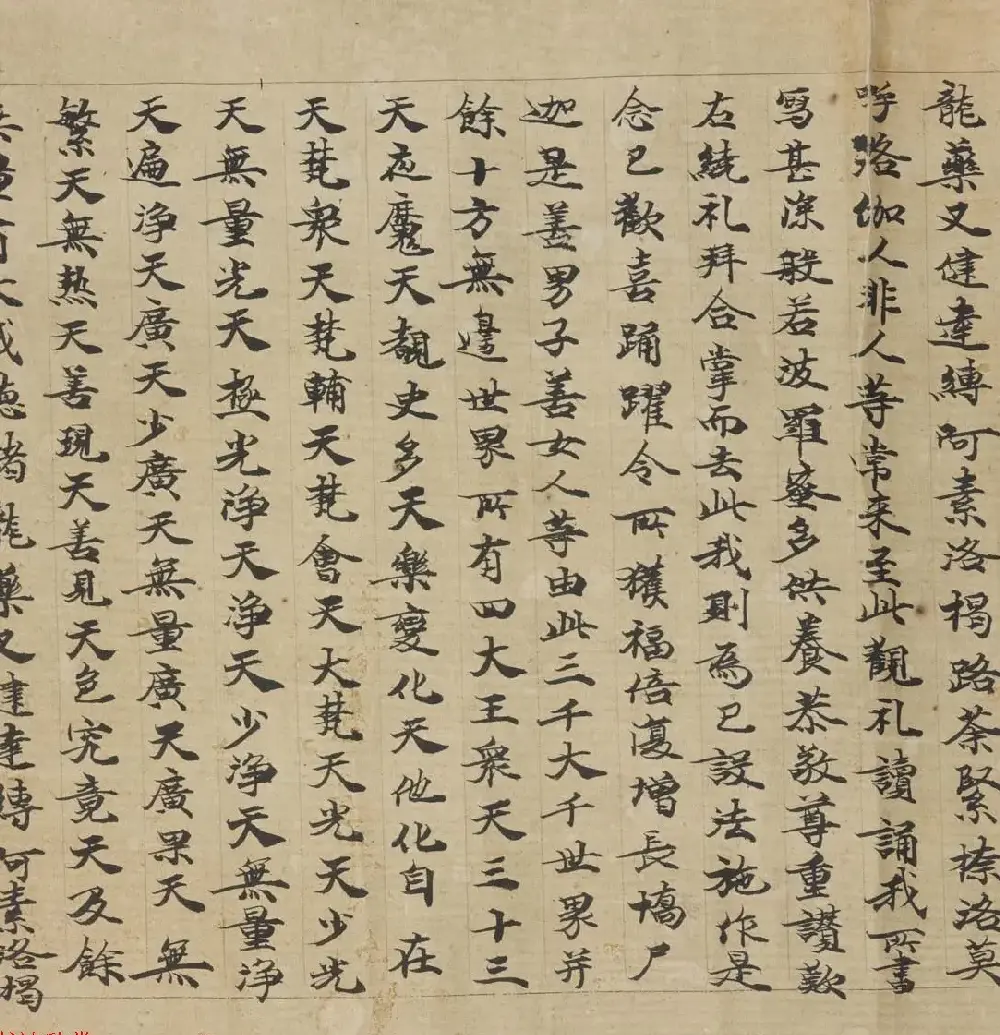 龍藥叉健達縛阿素洛揭路荼緊捺洛莫
呼洛伽人非人等常来至此觀礼讀誦我所書
寫甚深般若波羅蜜多供養恭敬尊重讚歎
右繞礼拜合掌而去此我則為已設法施作是
念已歡喜踊躍令所獲福倍復增長憍尸
迦是善男子善女人等由此三千大千世界并
餘十方無邊世界所有四大王衆天三十三
天夜魔天覩史多天樂變化天他化自在
天梵衆天梵輔天梵會天大梵天光天少光
天無量光天極光淨天淨天少淨天無量淨
天遍淨天廣天少廣天無量廣天廣果天無
繁天無熱天善現天善見天色究竟天及餘
威德諸龍藥叉健達縛阿素洛揭